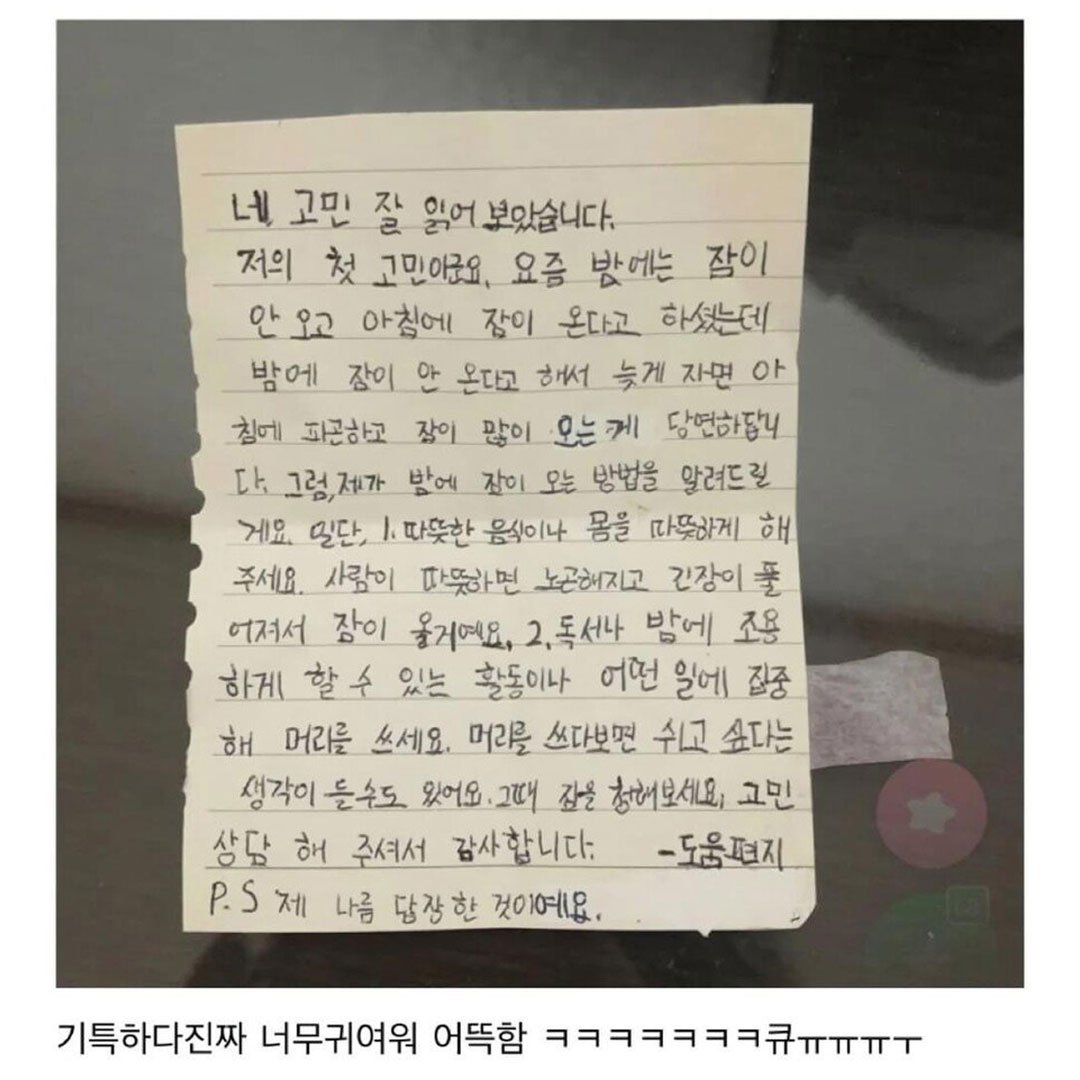 네, 고민 잘 읽어 보았습니다.
저의 첫 고민이군요. 요즘 밤에는 잠이
안 오고 아침에 잠이 온다고 하셨는데
밤에 잠이 안 온다고 해서 늦게 자면 아
침에 피곤하고 잠이 많이 오는게 당연하답니
다. 그럼, 제가 밤에 잠이 오는 방법을 알려드릴
게요. 일단, 1. 따뜻한 음식이나 몸을 따뜻하게 해
주세요. 사람이 따뜻하면 노곤해지고 긴장이 풀
어져서 잠이 올거예요. 2. 독서나 밤에 조용
하게 할 수 있는 활동이나 어떤 일에 집중
해 머리를 쓰세요. 머리를 쓰다보면 쉬고 싶다는
생각이 들수도 있어요. 그때 잠을 청해보세요. 고민
상담 해 주셔서 감사합니다. -도움편지
P.S 제 나름 답장한 것이예요.
기특하다진짜 너무귀여워 어뜩함 ㅋㅋㅋㅋㅋㅋㅋ큐ㅠㅠㅠㅜ